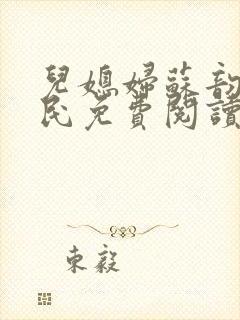 兒媳婦蘇韵
民免費閱讀
東籬